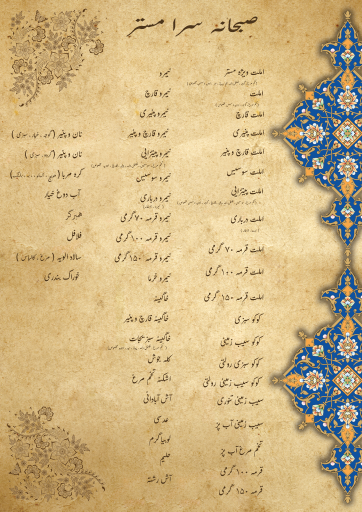 صبحانه سرا مستر
املت ویژه مستر
املت
املت قارچ
املت پنیری
املت قارچ و پنیر
املت سوسیس
املت پیتزایی
املت درباری
املت قرمه ۷۰ گرمی
املت قرمه ۱۰۰ گرمی
املت قرمه ۱۵۰ گرمی
کوکو سبزی
کوکو سیب زمینی
کوکو سبزی رولتی
کوکو سیب زمینی رولتی
سیب زمینی تنوری
سیب زمینی آب پز
تخم مرغ آب پز
قرمه ۱۰۰ گرمی
قرمه ۱۵۰ گرمی
نیمرو
نیمرو قارچ
نیمرو پنیری
نیمرو قارچ و پنیر
نیمرو پیتزایی
نیمرو سوسیس
نیمرو درباری
نیمرو قرمه ۷۰ گرمی
نیمرو قرمه ۱۰۰ گرمی
نیمرو قرمه ۱۵۰ گرمی
نیمرو خرما
خاگینه
خاگینه قارچ و پنیر
خاگینه سبزیجات
کله جوش
اشکنه تخم مرغ
آش آبادانی
عدسی
لوبیا گرم
حلیم
آش رشته
نان و پنیر (گوجه ، خیار ، سبزی)
نان و پنیر (گردو ، سبزی)
کره مربا
آب دوغ خیار
همبرگر
فلافل
سالاد الویه (مرغ ، کالباس)
خوراک بندری